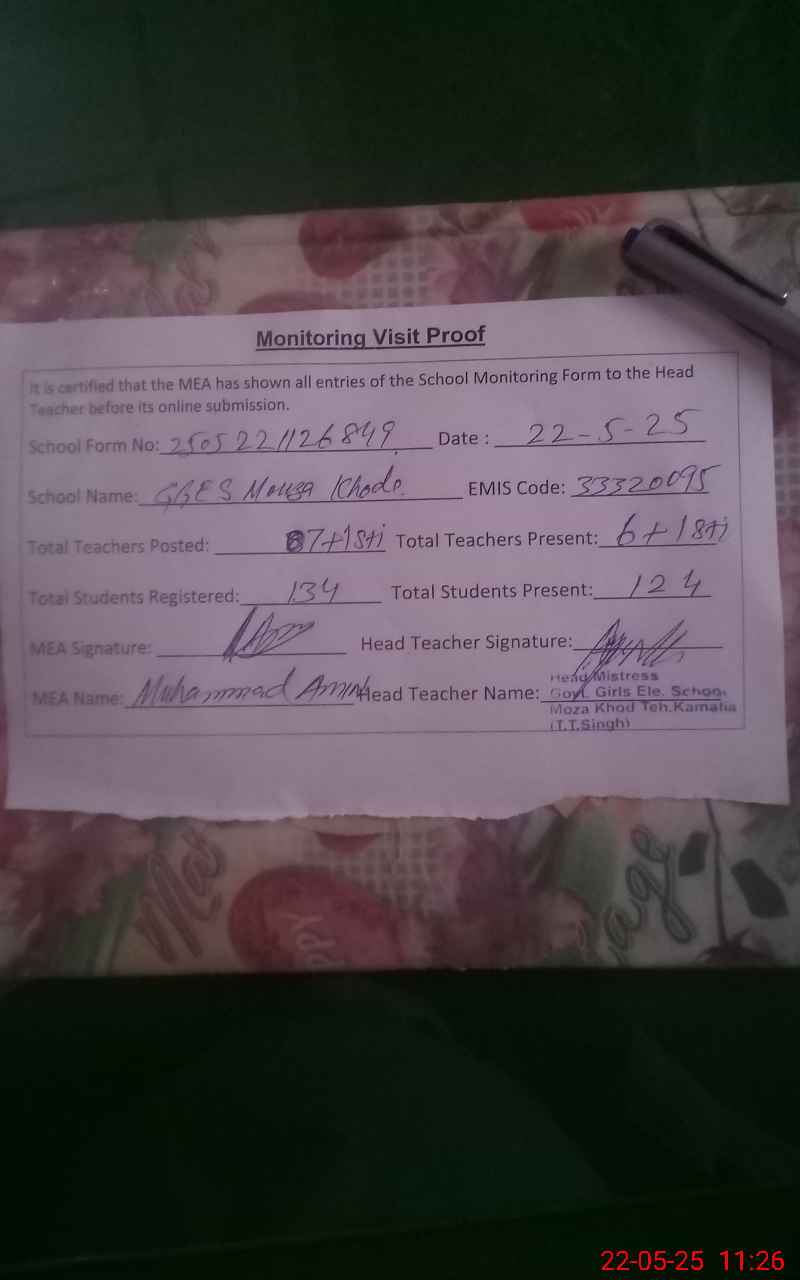 Monitoring Visit Proof
It is certified that the MEA has shown all entries of the School Monitoring Form to the Head
Teacher before its online submission.
School Form No: 2505221126849 Date : 22-5-25
School Name: GGES Mouza Khode EMIS Code: 33320095
Total Teachers Posted: 7+1sti Total Teachers Present: 6+1sti
Total Students Registered: 134 Total Students Present: 124
MEA Signature: Head Teacher Signature:
MEA Name: Muhammad Amin Head Teacher Name:
Head Mistress
Govt. Girls Ele. School
Moza Khod Teh.Kamalia
(T.T.Singh)
22-05-25 11:26